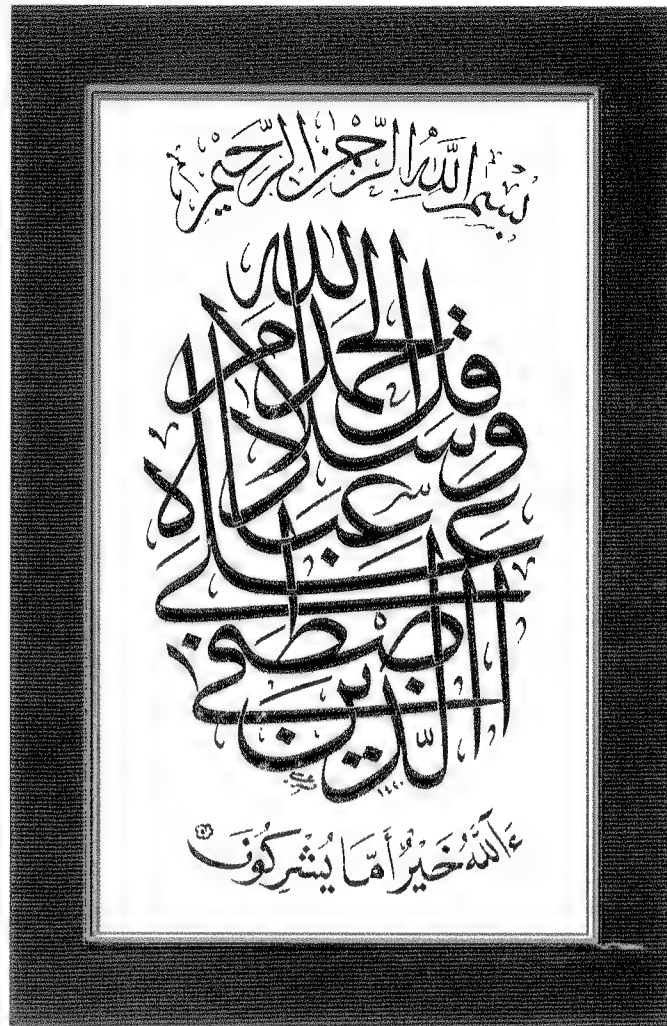 بِسْمِ اللَّهِ الرَّحْمَٰنِ الرَّحِيمِ
قل الحمد لله
وسلام
على عباده
الذين اصطفى
١٤٤٠
ءَآللَّهُ خَيْرٌ أَمَّا يُشْرِكُونَ